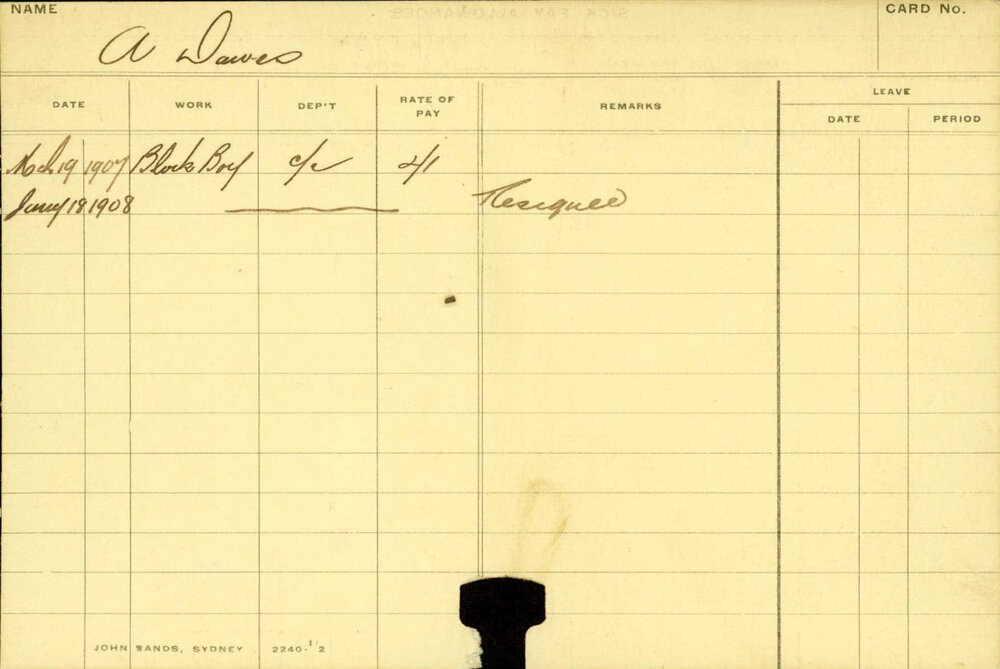 NAME CARD No.
A Dawes
LEAVE
DATE WORK DEP'T RATE OF PAY REMARKS DATE PERIOD
Mch 19 1907 Block Boy c/c 4/1
Jany 18 1908 Resigned
JOHN SANDS, SYDNEY 2240-1/2